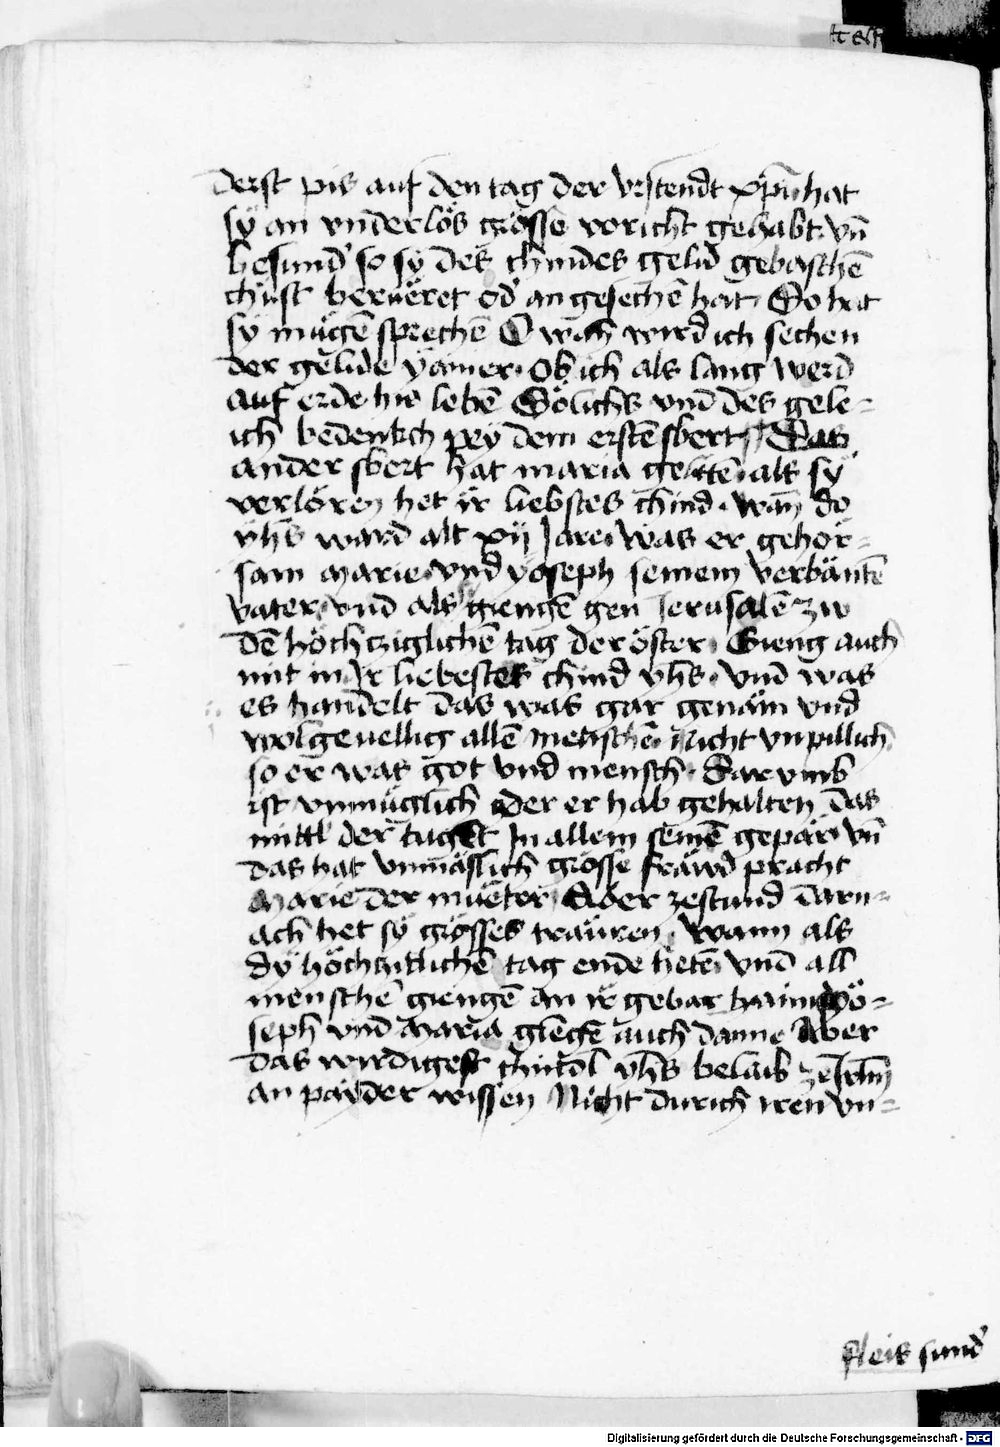 derst pis auf den tag der vrstendt xpī hat
sÿ an vnderlös grösse voricht gehabt vn̄
besund' so sÿ des chindes gelid' gebaschē
chüst berüeret od' an gesechē hat Do hat
sÿ mügē sprechē O wan̄ wird ich sechen
der gelide yämer Ob ich als lang werd
auf erde hie lebē Sölichs vnd des gele-
ich bedenkch pey dem erstē sbert Das
ander sbert hat maria gelitē als sÿ
verlören het ir liebstes chind wan̄ do
yhs ward alt xij Jare Was er gehör-
sam marie vnd yoseph seinem verbäntē
vater vnd als giengē gen Jerusalē zw
dē höchcziglichē tag der öster Gieng auch
mit in Ir liebestes chind yhs vnd was
es handelt das was gar genäm vnd
wolgeuellig allē menschē nicht vnpillich
so er was got vnd mensch Darvmb
ist vnmüglich der er hab gehalten das
mittl der tugēt In allem seinē gepär vn̄
das hat vnmäslich grösse fräwd pracht
marie der mueter Aber zestund darn-
ach het sÿ grösses träuren Wann als
dÿ höchzitlichē tag ende hetē vnd all
menschē giengē an ir gebar haim Yö-
seph vnd maria giengē auch danne Aber
das wirdigest chindl yhs belaib ze Irlm̄
an paÿder wissen Nicht durich iren vn-
fleis sund'
Digitalisierung gefördert durch die Deutsche Forschungsgemeinschaft - DFG